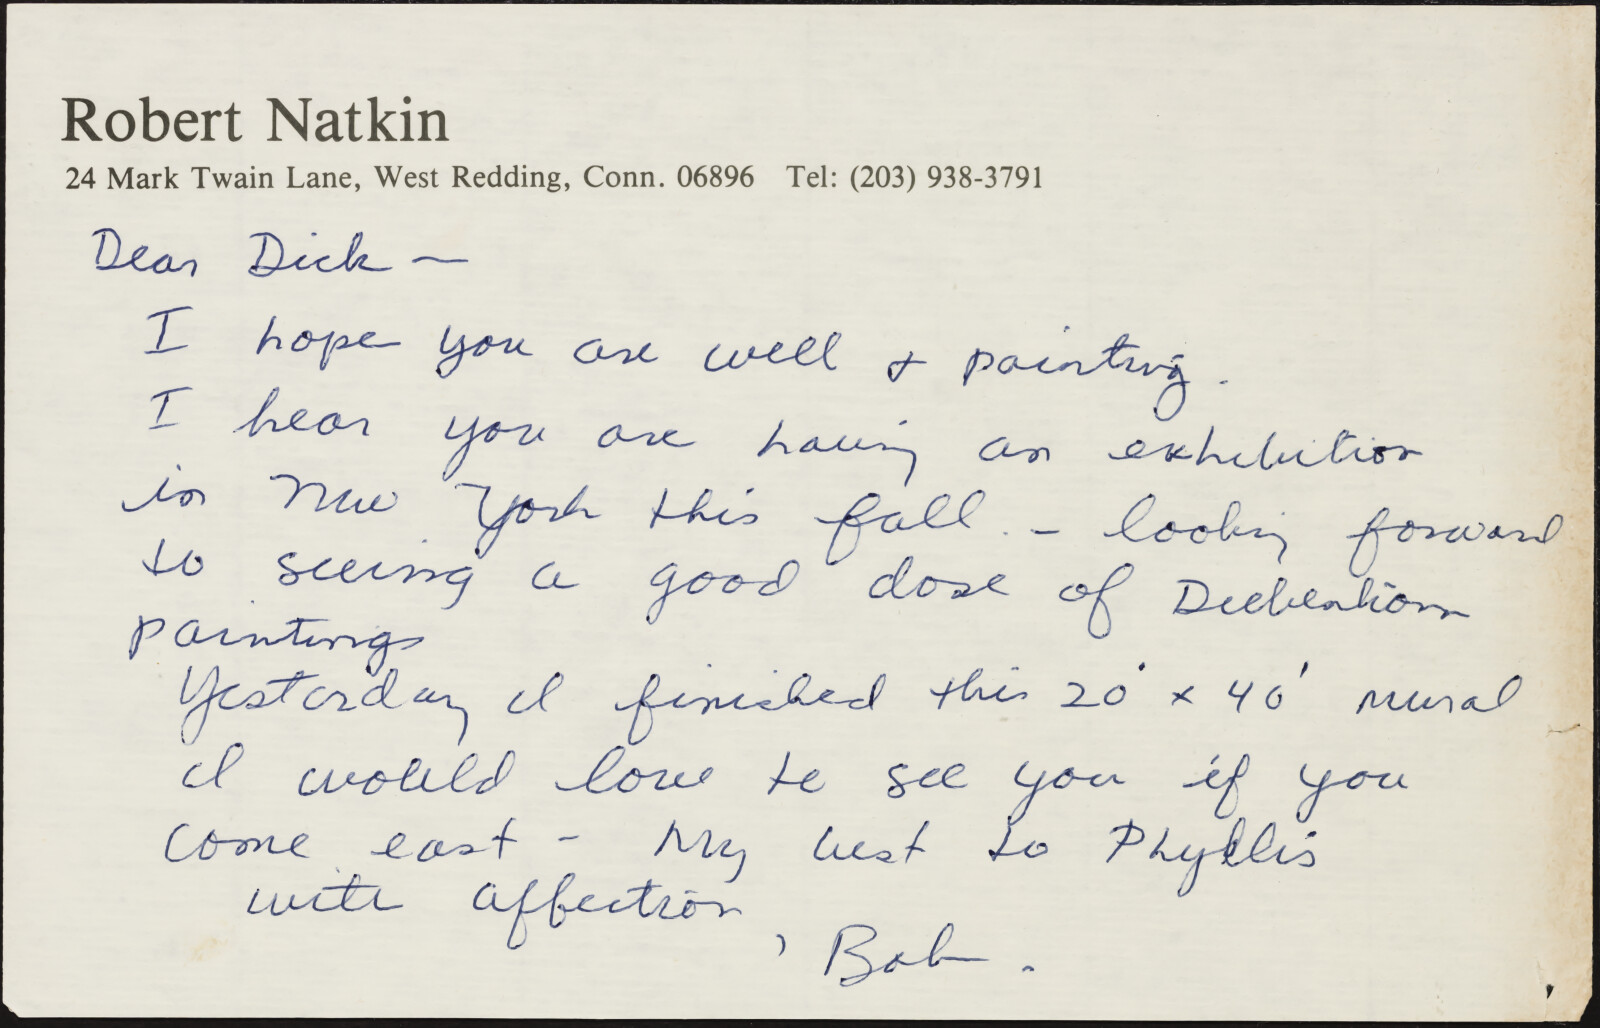 Robert Natkin
24 Mark Twain Lane, West Redding, Conn. 06896 Tel: (203) 938-3791
Dear Dick —
I hope you are well & painting.
I hear you are having an exhibition
in New York this fall. – looking forward
to seeing a good dose of Diebenkorn
paintings
Yesterday I finished this 20' x 40' mural
I would love to see you if you
come east – My best to Phyllis
with affection
, Bob.